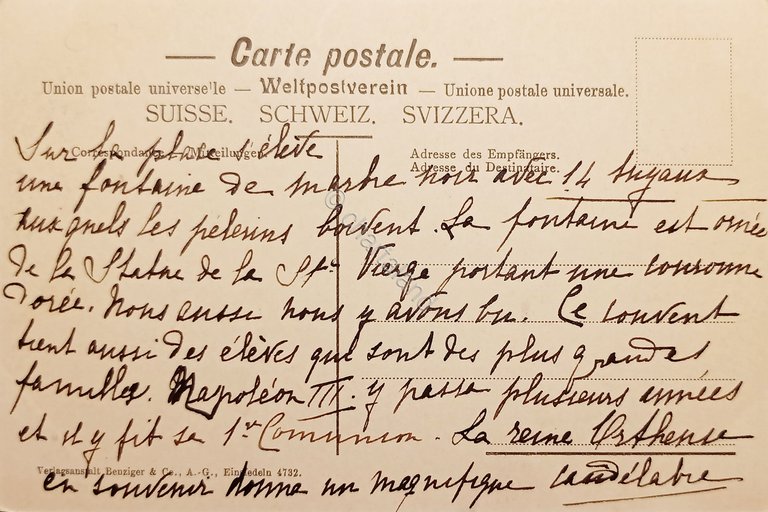 Carte postale.
Union postale universelle — Weltpostverein — Unione postale universale.
SUISSE. SCHWEIZ. SVIZZERA.
Sur la place s'élève
Correspondance. Mitteilungen
Adresse des Empfängers.
Adresse du Destinataire.
une fontaine de marbre noir avec 14 tuyaux
auxquels les pèlerins boivent. La fontaine est ornée
de la Statue de la Ste Vierge portant une couronne
dorée. Nous aussi nous y avons bu. Ce couvent
tient aussi des élèves qui sont des plus grandes
familles. Napoléon III. y passa plusieurs années
et il y fit sa 1re Communion. La reine Orthense
Verlagsanstalt Benziger & Co., A.-G., Einsiedeln 4732.
en souvenir donna un magnifique candélabre